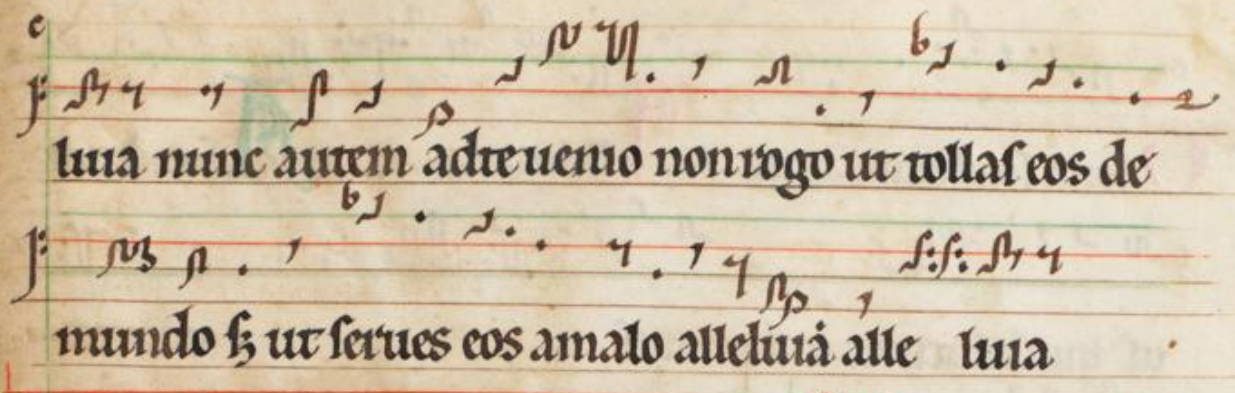 luia nunc autem adte uenio non rogo ut tollaſ eos de
mundo ſꝫ ut ſerues eos amalo alleluiá alle luia